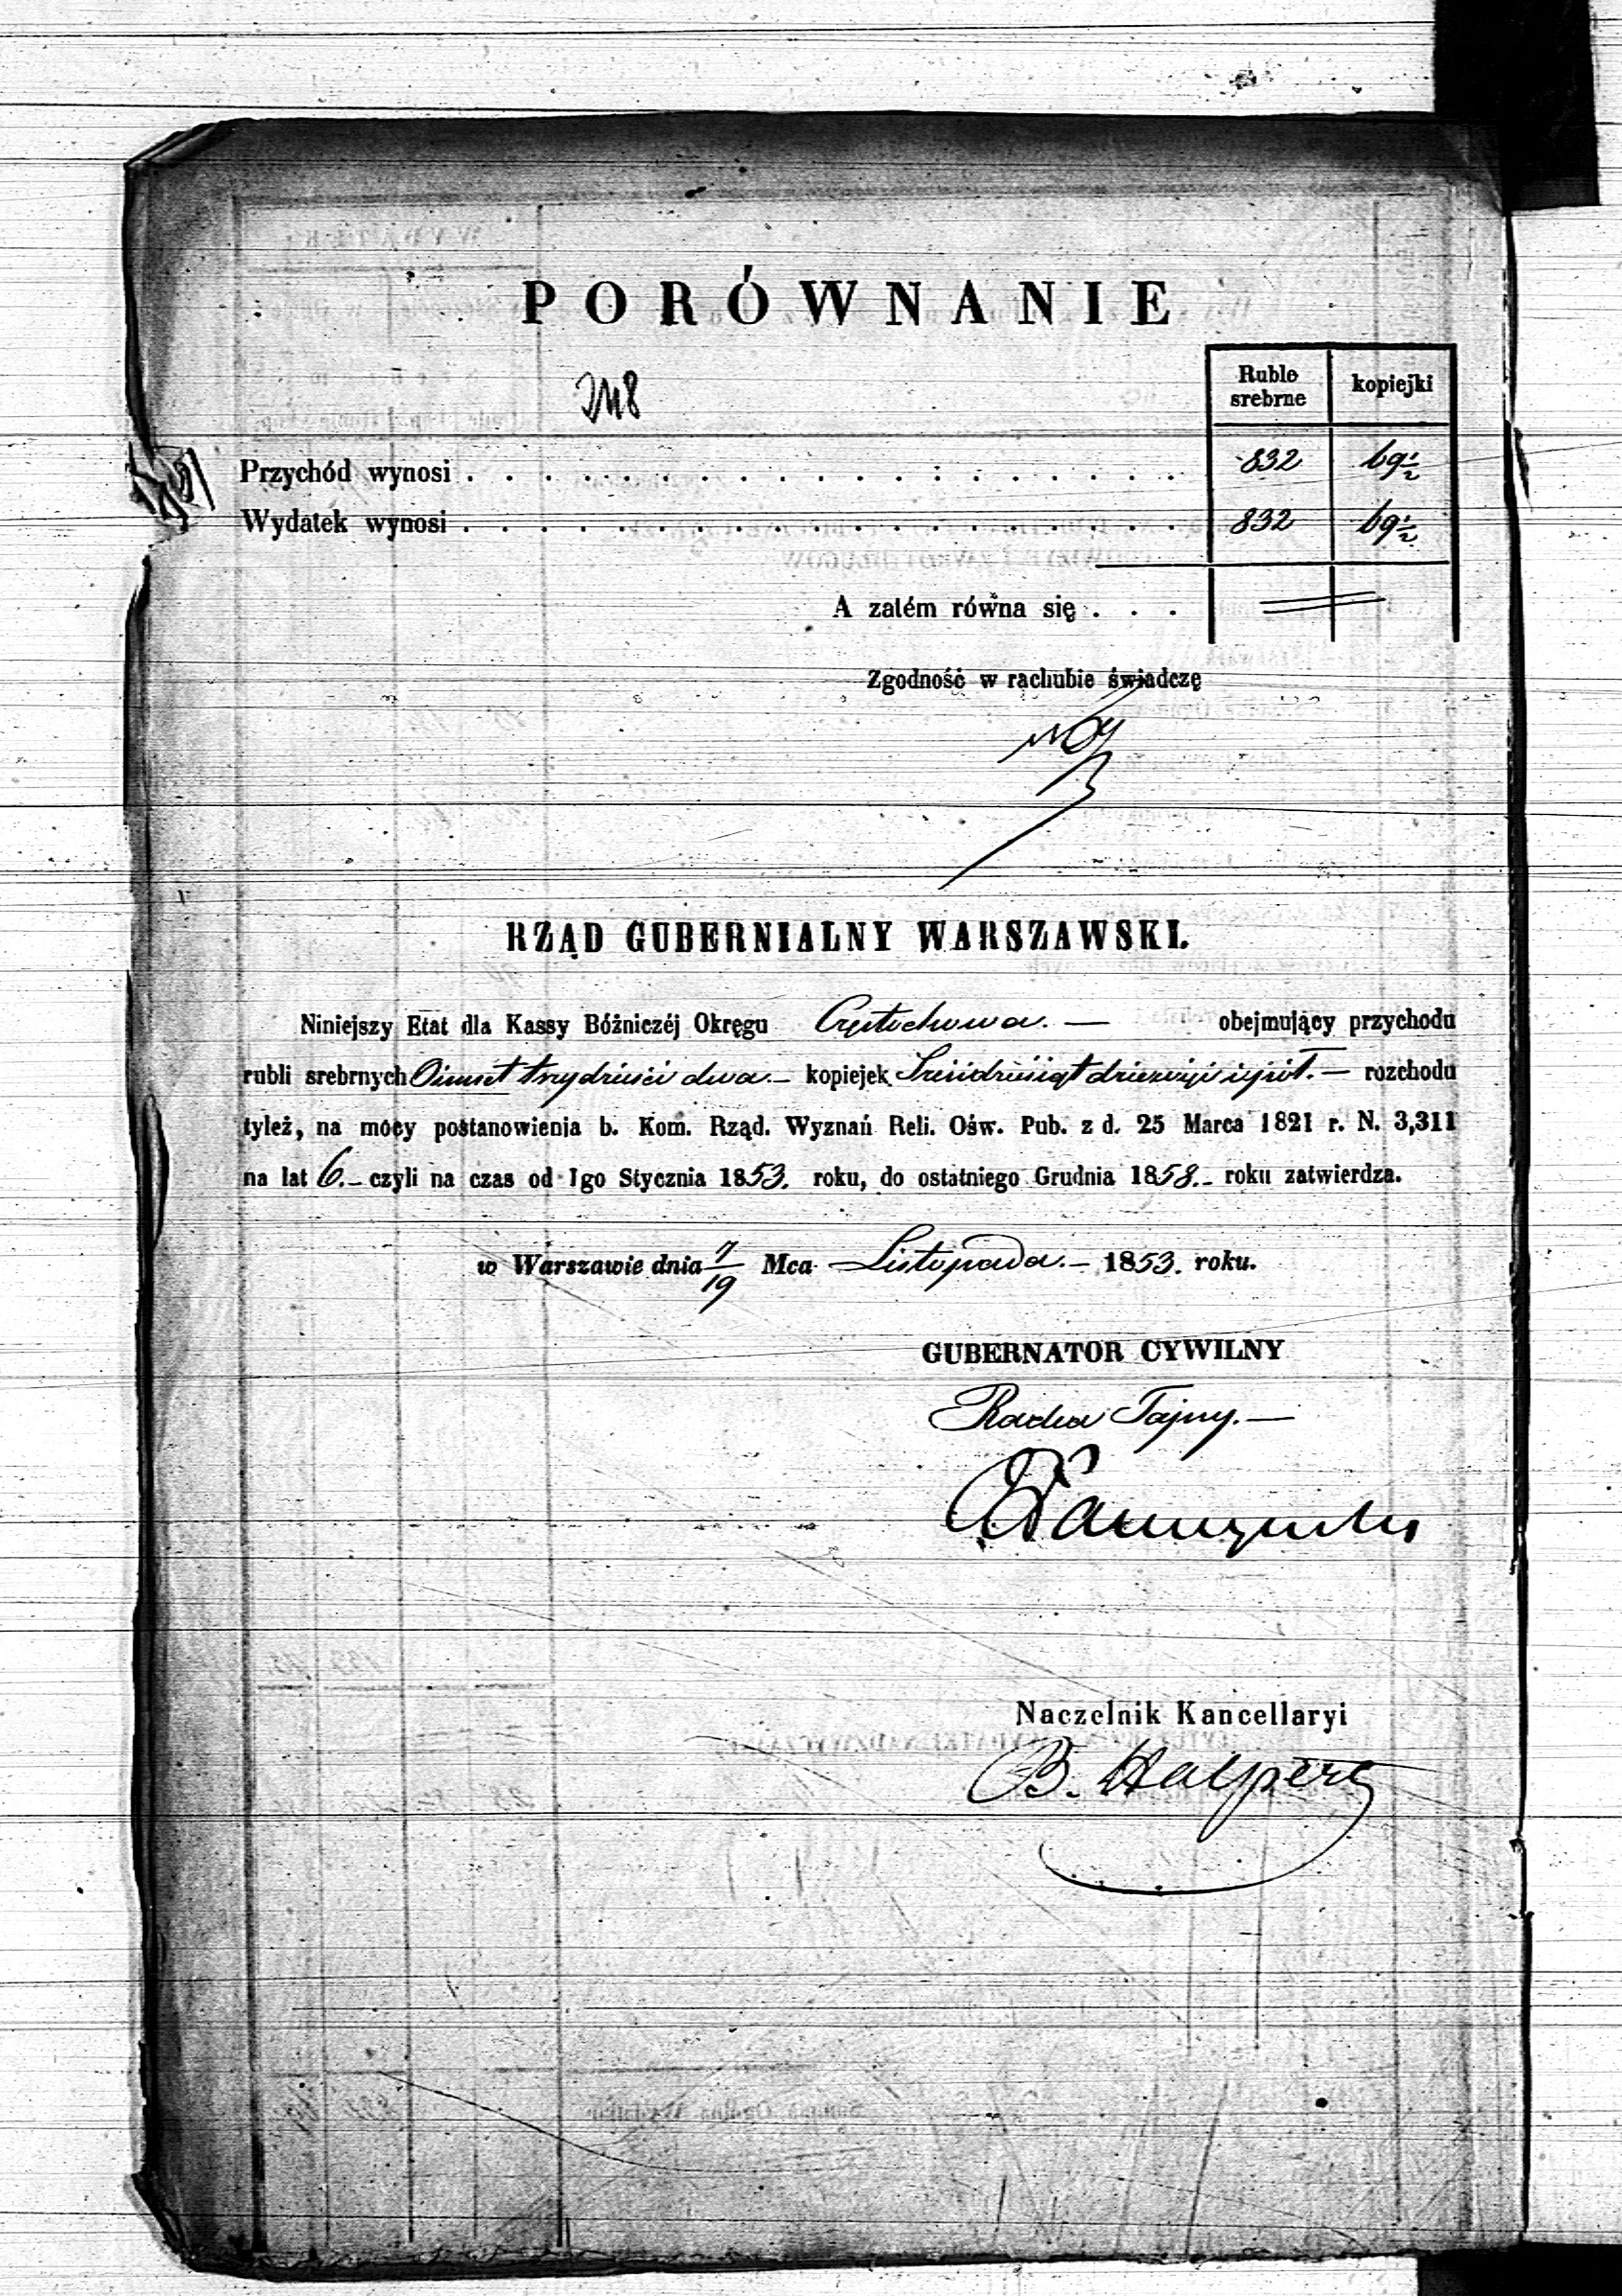 PORÓWNANIE
Ruble srebrne kopiejki
248
Przychód wynosi . . . . . . . . . . . . . . . . . . . 832 69½
Wydatek wynosi . . . . . . . . . . . . . . . . . . . 832 69½
A zatém równa się . . .
Zgodność w rachubie świadczę
RZĄD GUBERNIALNY WARSZAWSKI.
Niniejszy Etat dla Kassy Bóżniczéj Okręgu Częstochowa. — obejmujący przychodu
rubli srebrnych Ośmset trzydzieści dwa. – kopiejek Sześćdziesiąt dziewięć i pół. – rozchodu
tyleż, na mocy postanowienia b. Kom. Rząd. Wyznań Reli. Ośw. Pub. z d. 25 Marca 1821 r. N. 3,311
na lat 6. – czyli na czas od 1go Stycznia 1853. roku, do ostatniego Grudnia 1858. – roku zatwierdza.
w Warszawie dnia 7/19 Mca Listopada. – 1853. roku.
GUBERNATOR CYWILNY
Radca Tajny. —
Naczelnik Kancellaryi
B. Halpert